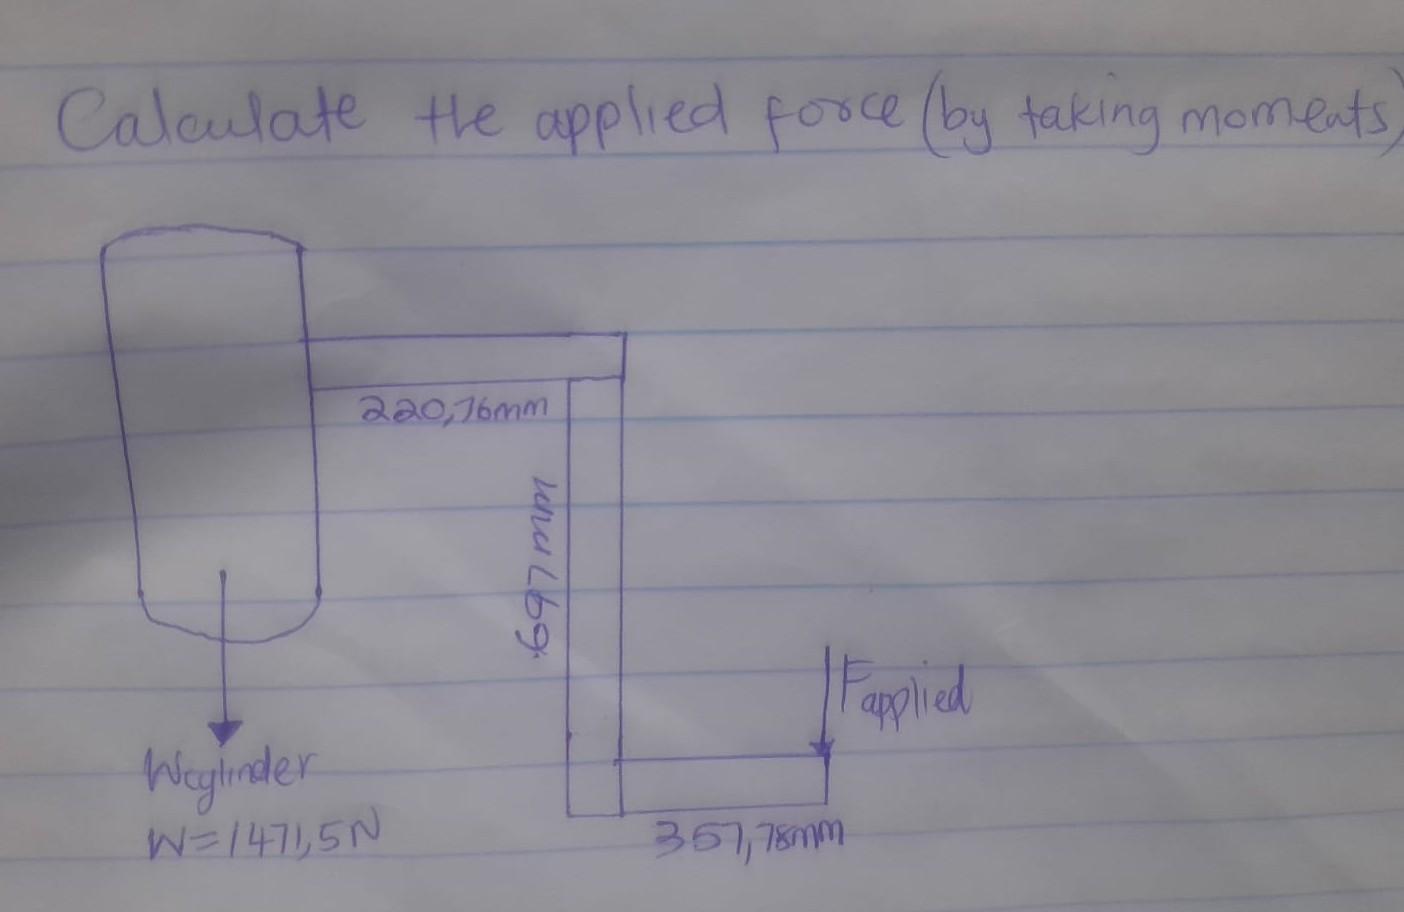 Calculate the applied force (by taking moments)
220,76mm
697mm
Fapplied
Wcylinder
W=1471,5N
357,78mm